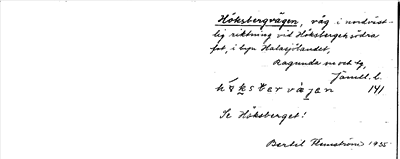 Höksbergvägen, väg i nordväst-
lig riktning vid Höksbergets södra
fot, i byn Halasjölandet,
Ragunda sn och tg,
Jämtl. l.
141
Se Höksberget!
Bertil Flemström 1935